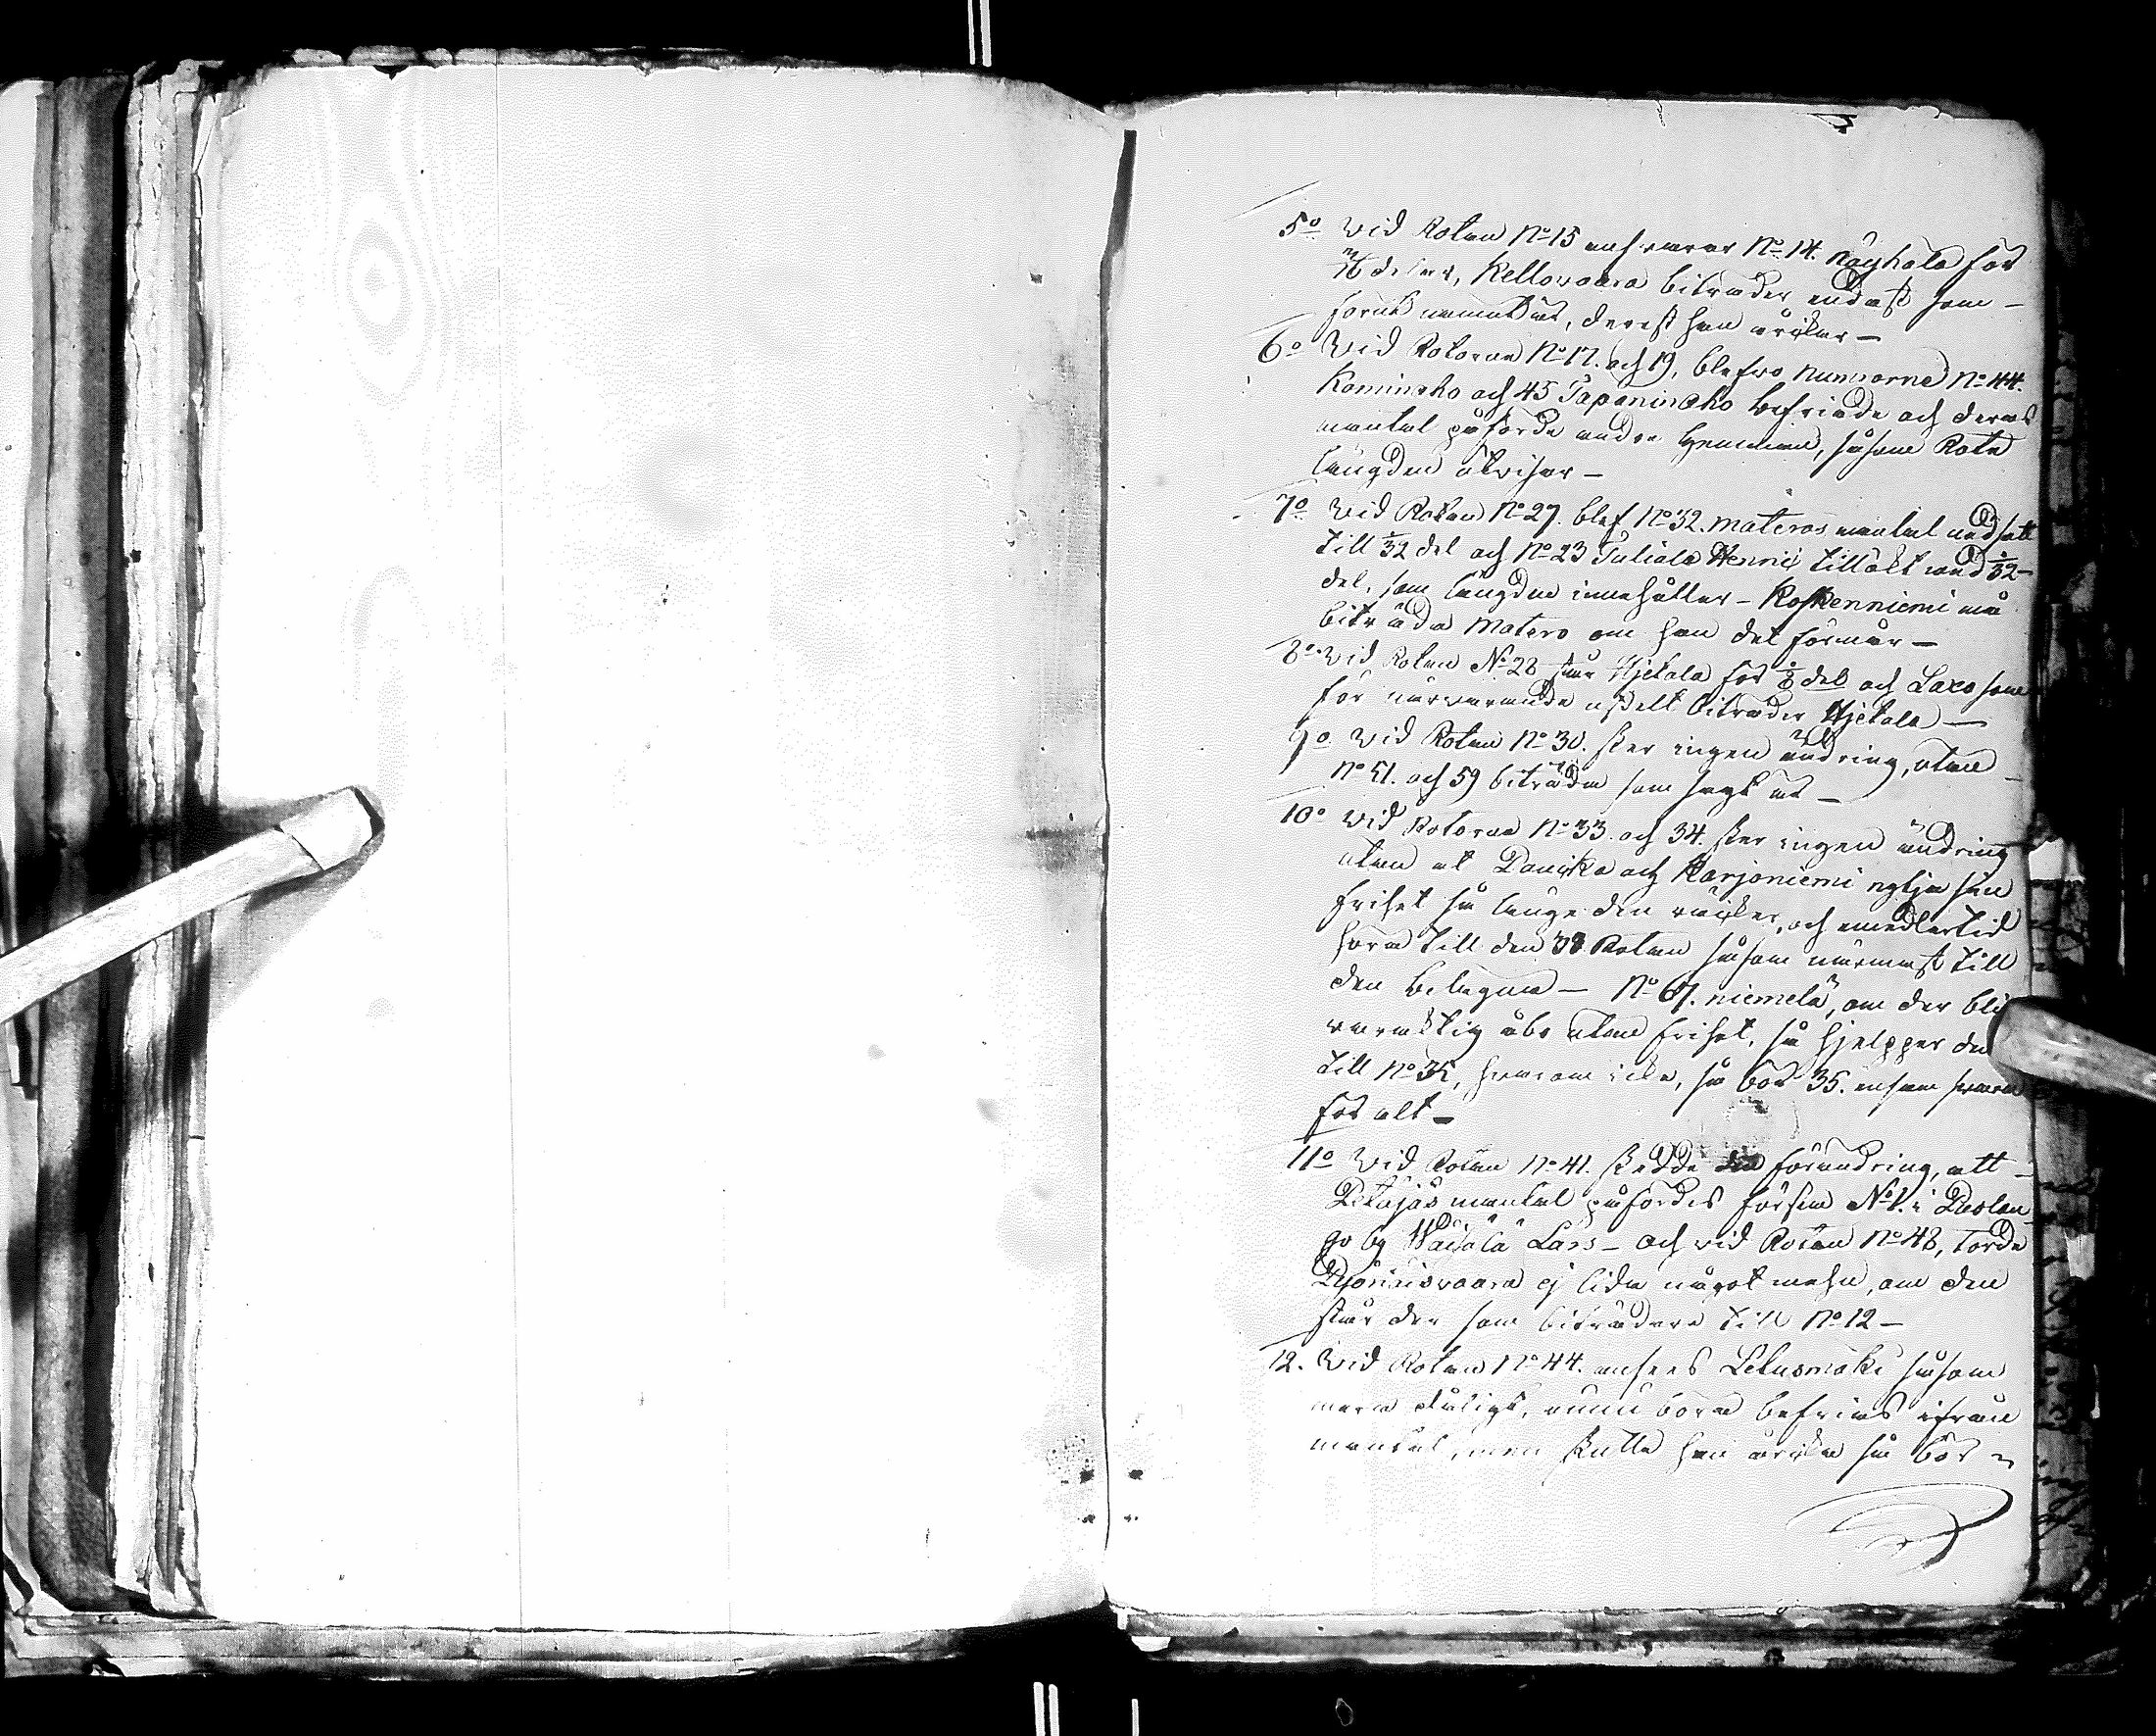 5o Wid Rotan No 15 ansvarar No 14. Räyhälä för
3/16 delar, Kellovaara biträder endast som -
förut nämdt är, derest han orkar -
6o Wid Rotorne No 17. och 19, blefvo numrorne No 44.
Kominaho och 45 Tapaninaho befriade och deras
mantal påförde andre Hemman, såsom Rote
längden utvisar -
7o Wid Rotan No 27. blef No 32. Materos mantal nedsatt
till 1/32 del och No 23 Juliala Henric tillökt med 1/32
del, som längden innehåller - Koskenniemi må
biträda Matero om han det förmår -
8o Wid Rotan No 28 står Hjetala för 1/8 del och Laxo som
för närvarande uselt biträder Hjetala -
9o Wid Rotan No 30. sker ingen ändring, utan
No 51. och 59 biträda som sagt är -
10o Wid Rotorne No 33. och 34. sker ingen ändring
utan at och Karjoniemi nytja sin
frihet så länge den räcker, och emedlertid
höra till den 38 Rotan såsom närmast till
den belägna - No 67. Niemelä, om der bli
varaktig åbo utan frihet, så hjelpper den
till No 35, hvarom icke, så bör 35. ensam svara
för alt -
11o Wid Rotan No 41. skedde den förändring, att -
Petäjäs mantal påfördes försin No 1. i Puolan
go by Wäisälä Lars - och vid Rotan No 48, torde
ej lida något mehn, om den
står der som biträdare till No 12 -
12. Wid Rotan No 44. anses Letusmäki såsom
mera dåligt, ännu böra befrias ifrån
mantal, men skulle han orka så bör